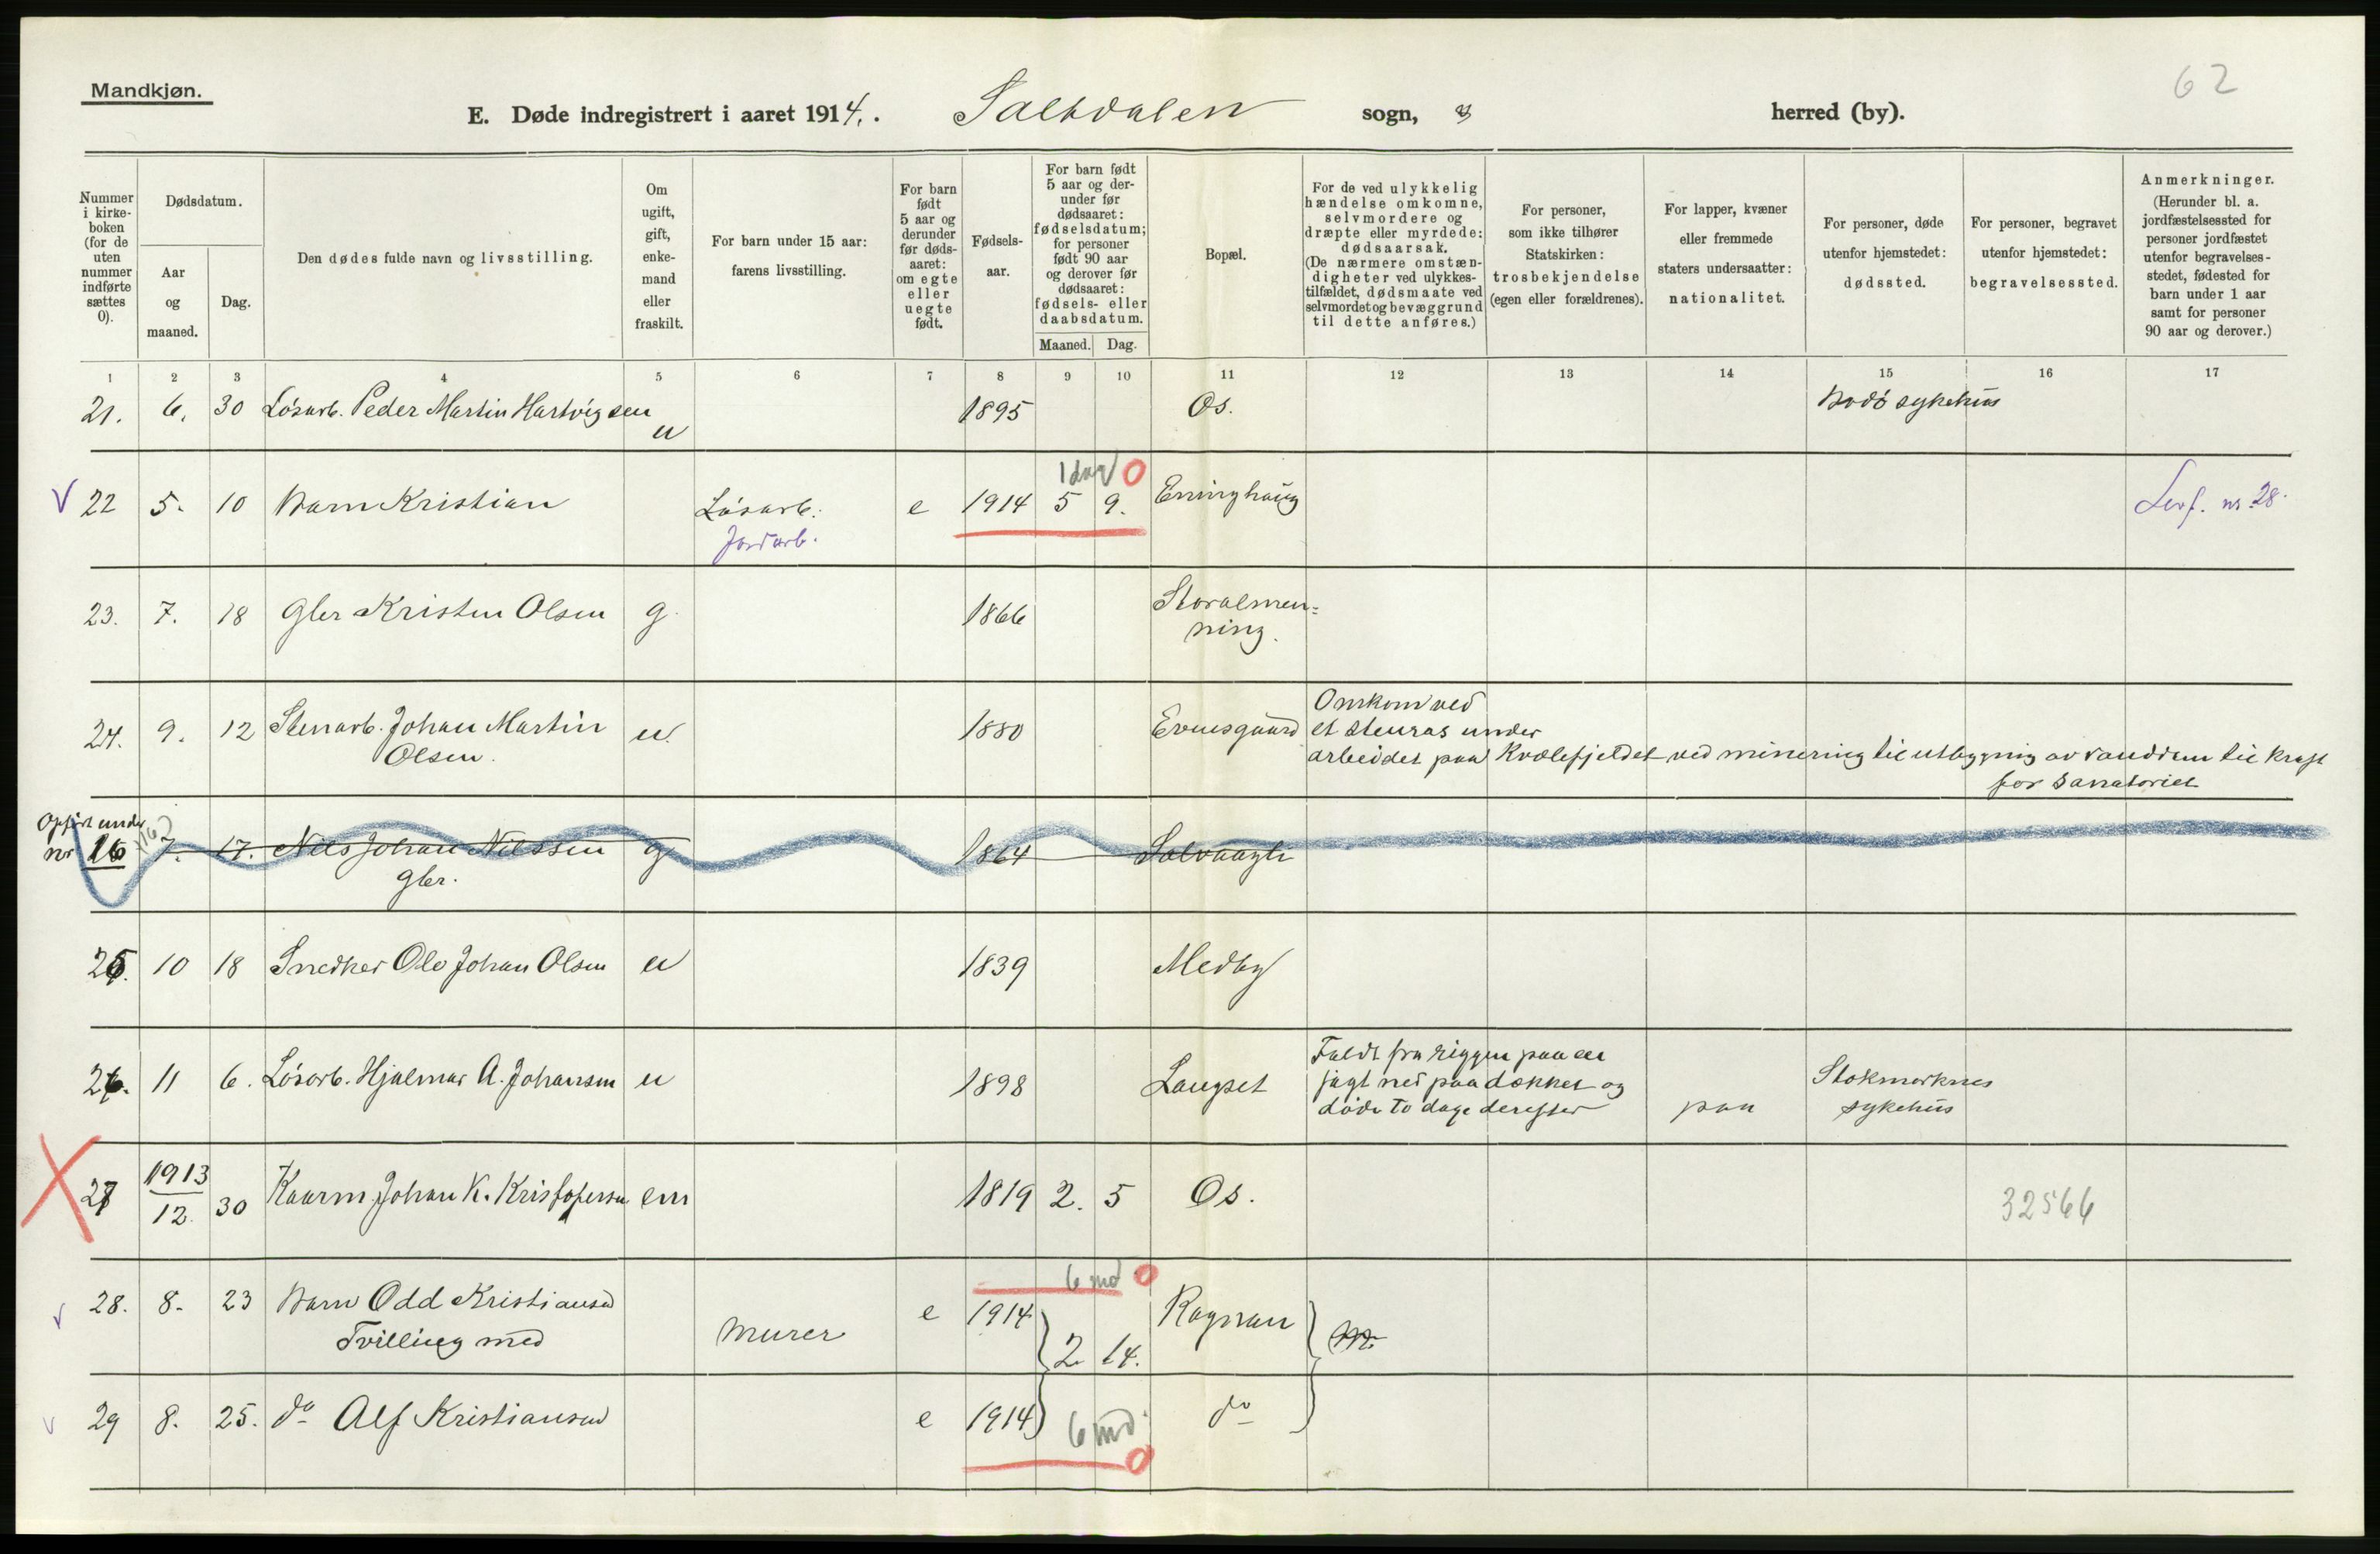 Mandkjøn.
62
E. Døde indregistrert i aaret 1914. Saltdalen sogn, herred (by).
Nummer i kirke-boken (for de uten nummer indførte sættes 0).
Dødsdatum.
Aar og maaned.
Dag.
Den dødes fulde navn og livsstilling.
Om ugift, gift, enke-mand eller fraskilt.
For barn under 15 aar: farens livsstilling.
For barn født 5 aar og derunder før døds-aaret: om egte eller uegte født.
Fødsels-aar.
For barn født 5 aar og der-under før dødsaaret: fødselsdatum; for personer født 90 aar og derover før dødsaaret: fødsels- eller daabsdatum.
Maaned. Dag.
Bopæl.
For de ved ulykkelig hændelse omkomne, selvmordere og dræpte eller myrdede: dødsaarsak. (De nærmere omstæn-digheter ved ulykkes-tilfældet, dødsmaate ved selvmordet og bevæggrund til dette anføres.)
For personer, som ikke tilhører Statskirken: trosbekjendelse (egen eller forældrenes).
For lapper, kvæner eller fremmede staters undersaatter: nationalitet.
For personer, døde utenfor hjemstedet: dødssted.
For personer, begravet utenfor hjemstedet: begravelsessted.
Anmerkninger. (Herunder bl. a. jordfæstelsessted for personer jordfæstet utenfor begravelses-stedet, fødested for barn under 1 aar samt for personer 90 aar og derover.)
1 2 3 4 5 6 7 8 9 10 11 12 13 14 15 16 17
21. 6. 30 Løsarb. Peder Martin Hartvigsen u 1895 Os. Bodø sykehus
1 dag 0
22 5. 10 Barn Kristian Løsarb. e 1914 5 9. Enninghaug Levf. nr. 28.
Jordarb.
23. 7. 18 Gbr Kristen Olsen g. 1866 Storalmen-
ning.
Omkom ved
24. 9. 12 Stenarb. Johan Martin u. 1880 Evensgaard et stenras under
Olsen. arbeidet paa Kvælefjeldet ved minering til utbygning av vanddam til kraft
for sanatoriet
Opført under
nr 16 7. 17. Nils Johan Nilssen g 1864 Salvaagli
Gbr.
25. 10 18 Snedker Ole Johan Olsen u 1839 Medby
Faldt fra riggen paa en
26. 11 6. Løsarb. Hjalmar A. Johansen u 1898 Langset jagt ned paa dækket og Stokmarknes
døde to dage derefter paa sykehus
27 1913
12 30 Kaarm Johan K. Kristofersen em 1819 2. 5 Os. 32566
6 md 0
28. 8. 23 Barn Odd Kristiansen e 1914 Rognan
Tvilling med murer 2 14.
29 8. 25. do Alf Kristiansen e 1914 6 md. do
0